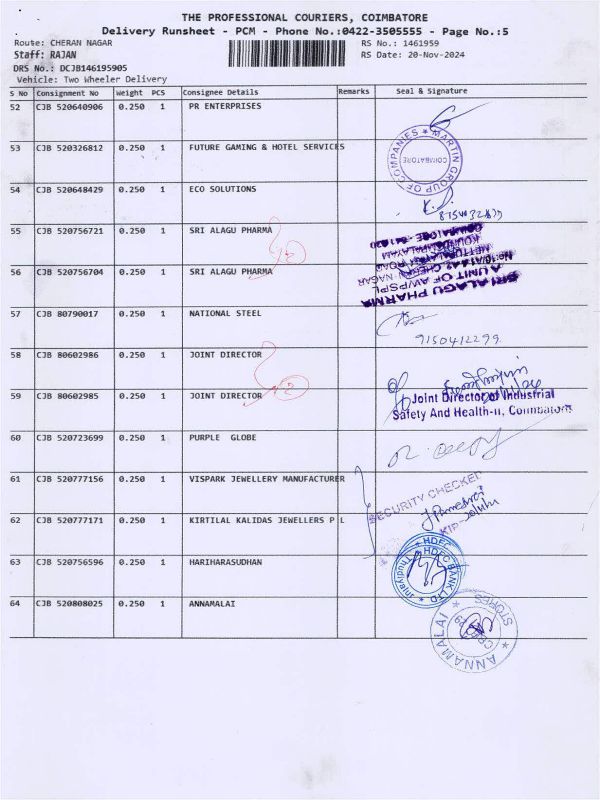 THE PROFESSIONAL COURIERS, COIMBATORE
Delivery Runsheet - PCM - Phone No.:0422-3505555 - Page No.:5
Route: CHERAN NAGAR
RS No.: 1461959
Staff: RAJAN
RS Date: 20-Nov-2024
DRS No.: DCJB146195905
Vehicle: Two Wheeler Delivery
S No Consignment No Weight PCS Consignee Details Remarks Seal & Signature
52 CJB 520640906 0.250 1 PR ENTERPRISES
53 CJB 520326812 0.250 1 FUTURE GAMING & HOTEL SERVICES
MARTIN GROUP OF COMPANIES ★
COIMBATORE
54 CJB 520648429 0.250 1 ECO SOLUTIONS
55 CJB 520756721 0.250 1 SRI ALAGU PHARMA
2
SRI ALAGU PHARMA
A UNIT OF AWPSPL
METTUPALAYAM ROAD
KOUNDAMPALAYAM
56 CJB 520756704 0.250 1 SRI ALAGU PHARMA
57 CJB 80790017 0.250 1 NATIONAL STEEL
9150412299
58 CJB 80602986 0.250 1 JOINT DIRECTOR
2
59 CJB 80602985 0.250 1 JOINT DIRECTOR
Joint Director of Industrial
Safety And Health-II, Coimbatore
60 CJB 520723699 0.250 1 PURPLE GLOBE
61 CJB 520777156 0.250 1 VISPARK JEWELLERY MANUFACTURER
SECURITY CHECKED
62 CJB 520777171 0.250 1 KIRTILAL KALIDAS JEWELLERS P L
63 CJB 520756596 0.250 1 HARIHARASUDHAN
★ HDFC BANK LTD ★
64 CJB 520808025 0.250 1 ANNAMALAI
ANNAMALAI ★ STORES ★